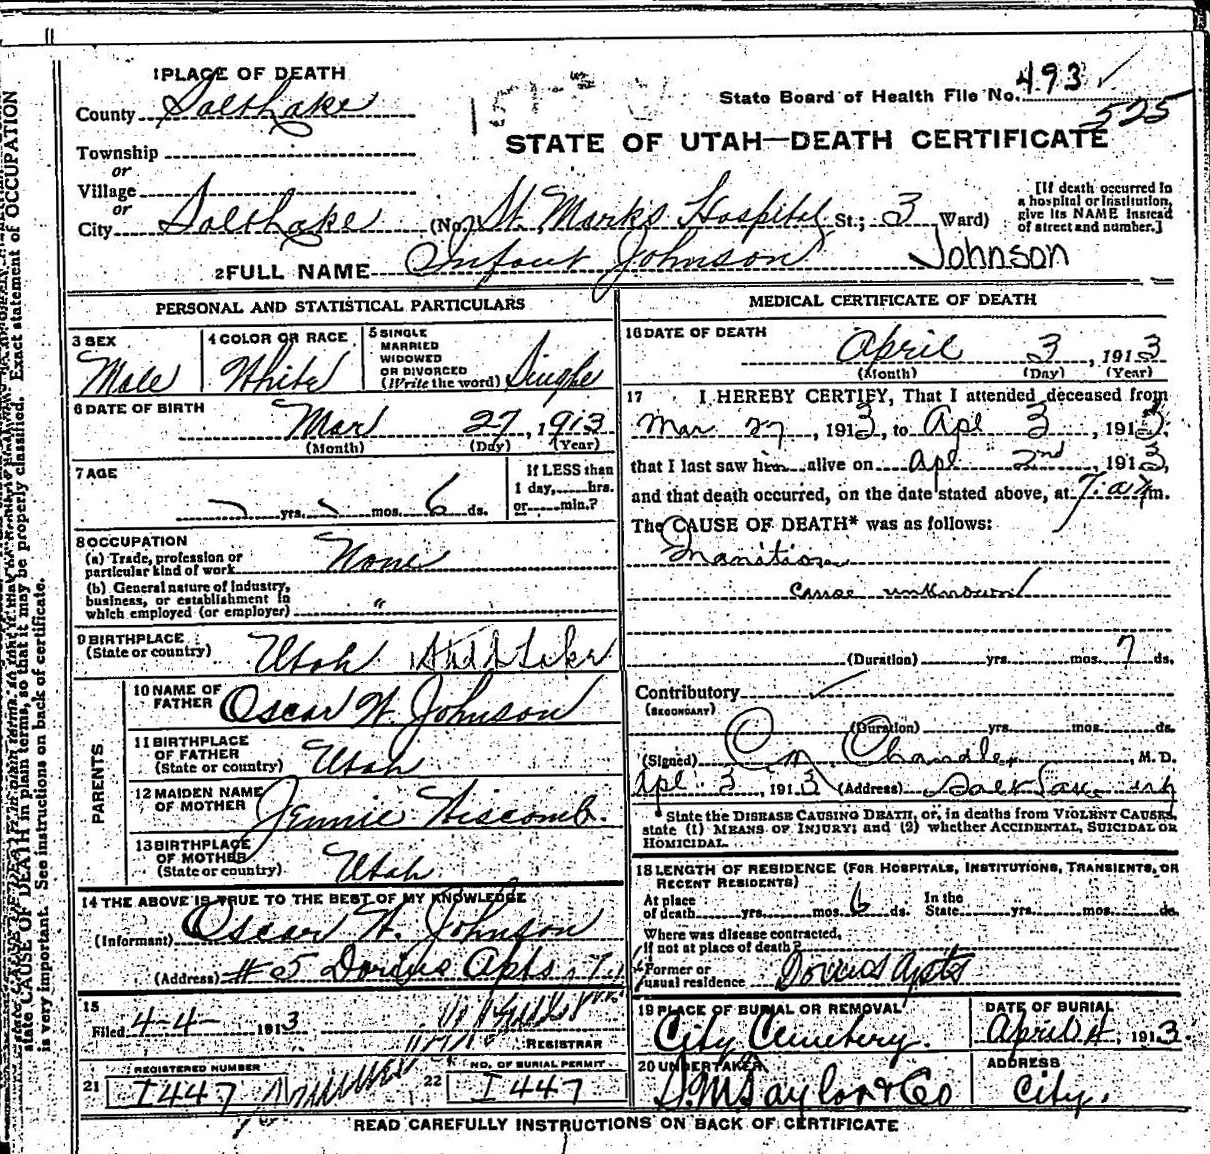 1 PLACE OF DEATH
County Salt Lake
State Board of Health File No. 493
525
STATE OF UTAH—DEATH CERTIFICATE
Township
or
Village
or
City Salt Lake (No. St. Marks Hospital St.; 3 Ward)
[If death occurred in a hospital or institution, give its NAME instead of street and number.]
2 FULL NAME Infant Johnson Johnson
PERSONAL AND STATISTICAL PARTICULARS
3 SEX
Male
4 COLOR OR RACE
White
5 SINGLE
MARRIED
WIDOWED
OR DIVORCED
(Write the word) Single
6 DATE OF BIRTH
Mar 27, 1913
(Month) (Day) (Year)
7 AGE
yrs. mos. 6 ds.
If LESS than
1 day, hrs.
or min.?
8 OCCUPATION
(a) Trade, profession or
particular kind of work None
(b) General nature of industry,
business, or establishment in
which employed (or employer) "
9 BIRTHPLACE
(State or country) Utah Salt Lake
PARENTS
10 NAME OF
FATHER Oscar W. Johnson
11 BIRTHPLACE
OF FATHER
(State or country) Utah
12 MAIDEN NAME
OF MOTHER Jennie Hiscomb.
13 BIRTHPLACE
OF MOTHER
(State or country) Utah
14 THE ABOVE IS TRUE TO THE BEST OF MY KNOWLEDGE
(Informant) Oscar W. Johnson
(Address) #5 Dorius Apts
15
Filed 4-4- 1913
REGISTRAR
REGISTERED NUMBER
21 I447
NO. OF BURIAL PERMIT
22 I447
MEDICAL CERTIFICATE OF DEATH
16 DATE OF DEATH
April 3, 1913
(Month) (Day) (Year)
17 I HEREBY CERTIFY, That I attended deceased from
Mar 27, 1913, to Apl 3, 1913,
that I last saw him alive on Apl 2nd, 1913,
and that death occurred, on the date stated above, at 7:a m.
The CAUSE OF DEATH* was as follows:
Inanition
cause unknown
(Duration) yrs. mos. 7 ds.
Contributory
(SECONDARY)
(Duration) yrs. mos. ds.
(Signed) Chandler, M. D.
Apl 3, 1913 (Address) Salt Lake
* State the DISEASE CAUSING DEATH, or, in deaths from VIOLENT CAUSES,
state (1) MEANS OF INJURY; and (2) whether ACCIDENTAL, SUICIDAL OR
HOMICIDAL.
18 LENGTH OF RESIDENCE (FOR HOSPITALS, INSTITUTIONS, TRANSIENTS, OR
RECENT RESIDENTS)
At place
of death yrs. mos. 6 ds. In the
State yrs. mos. ds.
Where was disease contracted,
if not at place of death?
Former or
usual residence Dorius Apts
19 PLACE OF BURIAL OR REMOVAL
City Cemetery.
DATE OF BURIAL
April 4, 1913.
20 UNDERTAKER
S. M. Taylor & Co
ADDRESS
City.
READ CAREFULLY INSTRUCTIONS ON BACK OF CERTIFICATE
state CAUSE OF DEATH in plain terms, so that it may be properly classified. Exact statement of OCCUPATION
is very important. See instructions on back of certificate.